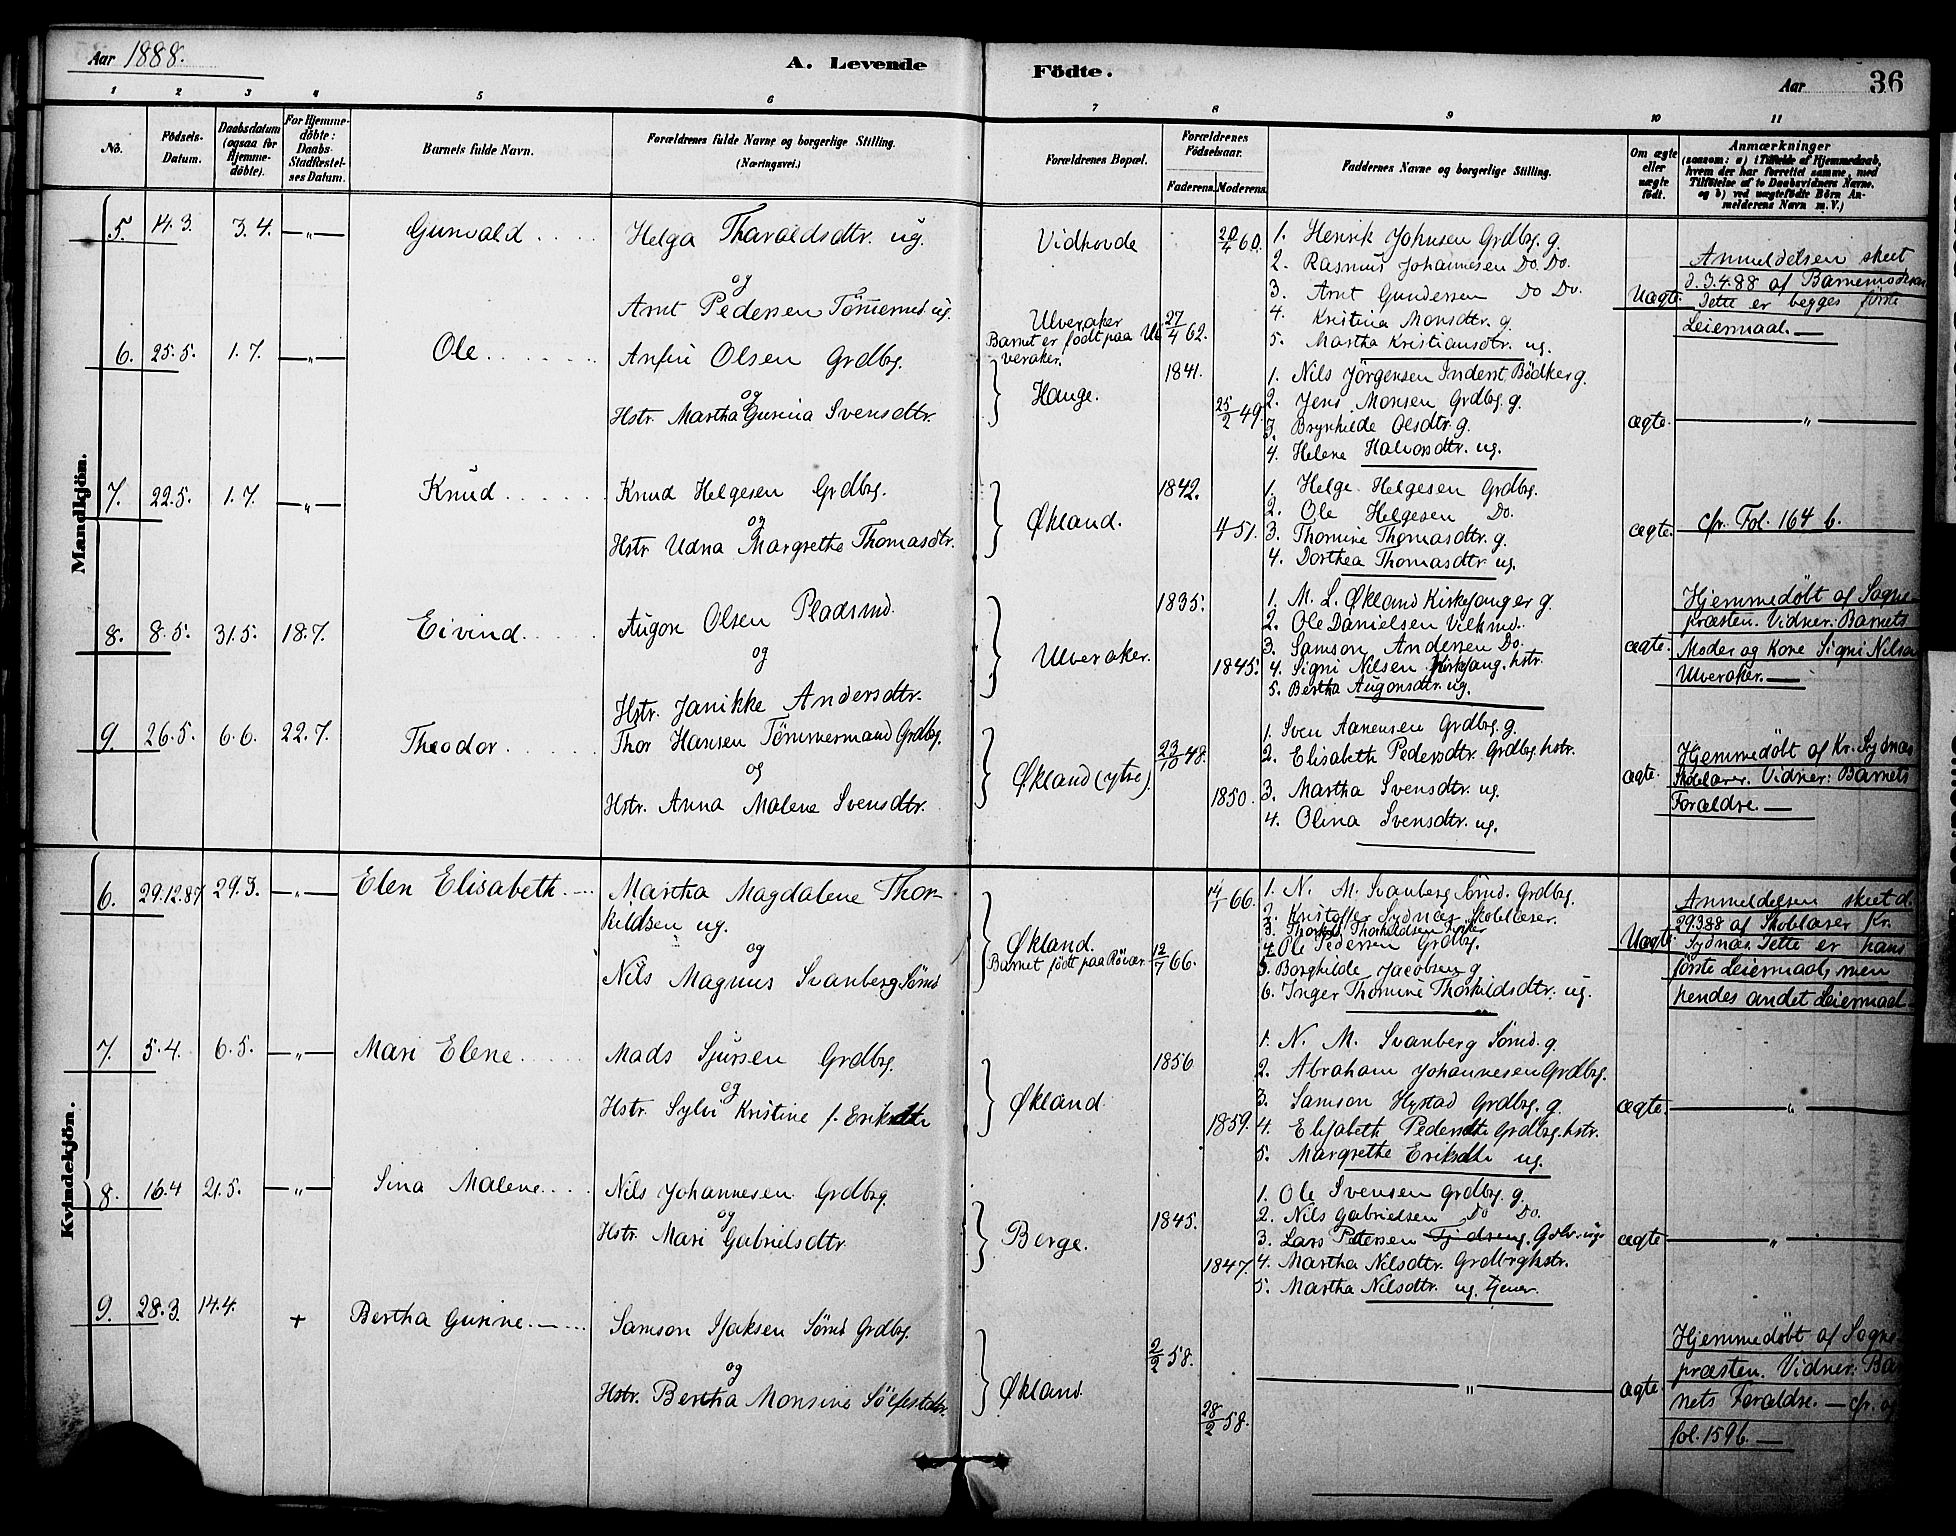 Aar 1888.
A. Levende Födte.
Aar 36
1 2 3 4 5 6 7 8 9 10 11
No.
Födsels-Datum.
Daabsdatum (ogsaa for Hjemmedöbte).
For Hjemmedöbte: Daabs-Stadfestelses Datum.
Barnets fulde Navn.
Forældrenes fulde Navne og borgerlige Stilling. (Næringsvei.)
Forældrenes Bopæl.
Forældrenes Födselsaar.
Faderens. Moderens.
Faddernes Navne og borgerlige Stilling.
Om ægte eller uægte födt.
Anmærkninger
(saasom: a) i Tilfælde af Hjemmedaab,
hvem der har forrettet samme, med
Tilföielse af to Daabsvidners Navne,
og b) ved uægtefödte Börn Anmelderens Navn m. V.)
Mandkjön.
5. 14.3. 3.4. —„— Gunvald
Helga Tharaldsdtr. ug.
og
Arnt Pedersen Tømmermd. ug.
Vidhovde
20/4 60.
Ulveraker
Barnet er født paa Ul-
veraker.
27/4 62.
1. Henrik Johnsen Grdbg. g.
2. Rasmus Johannesen Do. Do.
3. Arnt Gundersen Do Do.
4. Kristina Monsdtr. g.
5. Martha Kristiansdtr. ug.
Uægte
Anmeldelsen skeet
d. 3.4.88 af Barnemoderen
Dette er begges første
Leiermaal. —
6. 25.5. 1.7. —„— Ole
Anfin Olsen Grdbg.
og
Hstr. Martha Gurina Svensdtr.
Hauge.
1841.
25/2 49.
1. Nils Jørgensen Inderst Bødker g.
2. Jens Monsen Grdbg. g.
3. Brynhilde Olsdtr. g.
4. Helene Halvorsdtr. ug.
ægte. —„—
7. 22.5. 1.7. —„— Knud
Knud Helgesen Grdbg.
og
Hstr Udna Margrethe Thomasdtr.
Økland.
1842.
4 51.
1. Helge Helgesen Grdbg.
2. Ole Helgesen Do.
3. Thomine Thomasdtr. g.
4. Dorthea Thomasdtr ug.
ægte.
cfr. Fol. 164 b.
8. 8.5. 31.5. 18.7. Eivind
Augon Olsen Pladsmd.
og
Hstr. Janikke Andersdtr.
Ulveraker.
1835.
1845.
1. M. L. Økland Kirkesanger g.
2. Ole Danielsen
3. Samson Andersen Do.
4. Signi Nilsen Kirkesang. hstr.
5. Bertha Augonsdtr. ug.
ægte.
Hjemmedøbt af Sogne-
præsten. Vidner: Barnets
Moder og Kone Signi Nilsen
Ulveraker. —
9. 26.5. 6.6. 22.7. Theodor
Thor Hansen Tømmermand Grdbg.
og
Hstr. Anna Malene Svensdtr.
Økland (ytre).
23/10 48.
1850.
1. Sven Aanensen Grdbg. g.
2. Elisabeth Pedersdtr. Grdbg. hstr.
3. Martha Svensdtr. ug.
4. Olina Svensdtr. ug.
ægte.
Hjemmedøbt af Kr. Sydnæs
Skolelærer. Vidner: Barnets
Forældre. —
Kvindekjön.
6. 29.12.87 29.3. —„— Elen Elisabeth.
Martha Magdalene Thor-
kildsen ug.
og
Nils Magnus Svanberg Sømd
Økland.
Barnet født paa Røvær.
14/1 66.
12/7 66.
1. N. M. Svanberg Sømd. Grdbg.
2. Kristoffer Sydnæs Skolelærer.
3. Thorkild Thorkildsen
4. Ole Pedersen Grdbg.
5. Borghilde Jacobsen g
6. Inger Thomine Thorkildsdtr. ug.
Uægte
Anmeldelsen skeet d.
29.3.88 af Skolelærer Kr.
Sydnæs. Dette er hans
første Leiermaal, men
hendes andet Leiermaal —
7. 5.4. 6.5. —„— Mari Elene
Mads Sjursen Grdbg.
og
Hstr. Sylvi Kristine f. Eriksdtr
Økland
1856
1859.
1. N. M. Svanberg Sømd. g.
2. Abraham Johannesen Grdbg.
3. Samson Hystad Grdbg. g.
4. Elisabeth Pedersdtr Grdbg. hstr.
5. Margrethe Eriksdtr ug.
ægte. —„—
8. 16.4 21.5. —„— Sina Malene
Nils Johannesen Grdbg.
og
Hstr. Mari Gabrielsdtr
Borge.
1845.
1847.
1. Ole Svensen Grdbg. g.
2. Nils Gabrielsen Do Do.
3. Lars Petersen
4. Martha Nilsdtr. Grdbrghstr.
5. Martha Nilsdtr. ug. tjener.
ægte —„—
9. 28.3. 14.4. + Bertha Gurine.
Samson Isaksen Sømd Grdbg.
og
Hstr. Bertha Monsine Sølfestdtr.
Økland
2/2 58.
28/2 58.
—„—
ægte
Hjemmedøbt af Sogne-
præsten. Vidner: Bar-
nets Forældre. — cfr. og
fol. 159 b. —